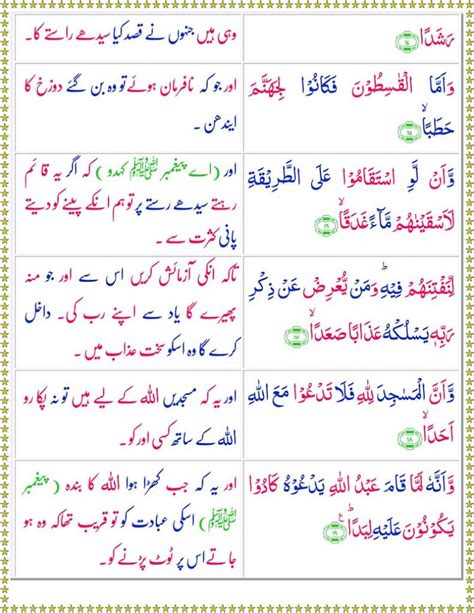 رَشَدًا ﴿۱۴﴾
وہی ہیں جنہوں نے قصد کیا سیدھے راستے کا۔
وَاَمَّا الْقٰسِطُوْنَ فَكَانُوْا لِجَهَنَّمَ
حَطَبًا ۙ﴿۱۵﴾
اور جو کہ نافرمان ہوئے تو وہ بن گئے دوزخ کا
ایندھن۔
وَّاَنْ لَّوِ اسْتَقَامُوْا عَلَى الطَّرِيْقَةِ
لَاَسْقَيْنٰهُمْ مَّآءً غَدَقًا ۙ﴿۱۶﴾
اور (اے پیغمبر ﷺ کہدو) کہ اگر یہ قائم
رہتے سیدھے رستے پر تو ہم انکے پینے کو دیتے
پانی کثرت سے۔
لِّنَفْتِنَهُمْ فِيْهِ ؕ وَمَنْ يُّعْرِضْ عَنْ ذِكْرِ
رَبِّهٖ يَسْلُكْهُ عَذَابًا صَعَدًا ۙ﴿۱۷﴾
تاکہ انکی آزمائش کریں اس سے اور جو منہ
پھیرے گا یاد سے اپنے رب کی۔ داخل
کرے گا وہ اسکو سخت عذاب میں۔
وَّاَنَّ الْمَسٰجِدَ لِلّٰهِ فَلَا تَدْعُوْا مَعَ اللّٰهِ
اَحَدًا ۙ﴿۱۸﴾
اور یہ کہ مسجدیں اللہ کے لیے ہیں تو نہ پکارو
اللہ کے ساتھ کسی اور کو۔
وَّاَنَّهٗ لَمَّا قَامَ عَبْدُ اللّٰهِ يَدْعُوْهُ كَادُوْا
يَكُوْنُوْنَ عَلَيْهِ لِبَدًا ؕ﴿۱۹﴾
اور یہ کہ جب کھڑا ہوا اللہ کا بندہ (پیغمبر
ﷺ) اسکی عبادت کو تو قریب تھا کہ وہ ہو
جاتے اس پر ٹوٹ پڑنے کو۔